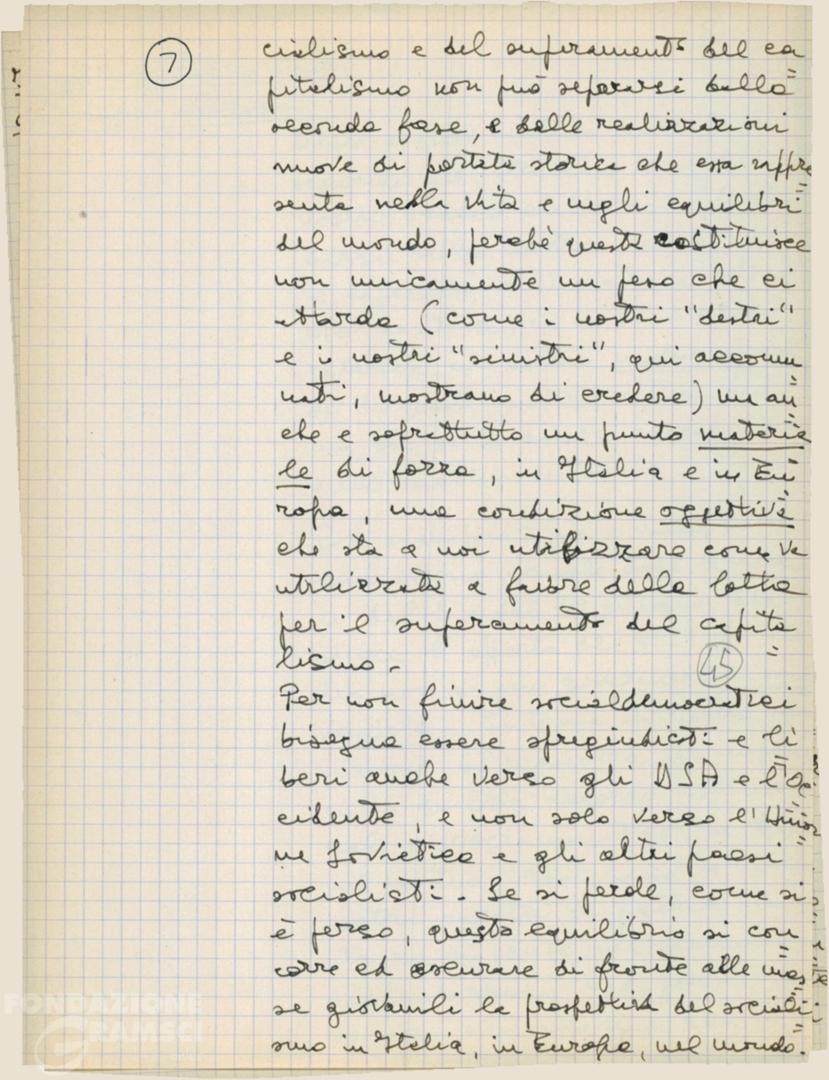 7
cialismo e del superamento del ca=
pitalismo non può separarsi dalla
seconda fase, e dalle realizzazioni
nuove di portata storica che essa rappre=
senta nella vita e negli equilibri
del mondo, perchè questa costituisce
non unicamente un peso che ci
attarda (come i nostri "destri"
e i nostri "sinistri", qui accomu=
nati, mostrano di credere) ma an=
che e soprattutto un punto materia=
le di forza, in Italia e in Eu=
ropa, una condizione oggettiva
che sta a noi utilizzare come va
utilizzata a favore della lotta
per il superamento del capita=
lismo.
45
Per non finire socialdemocratici
bisogna essere spregiudicati e li=
beri anche verso gli USA e l'Oc=
cidente, e non solo verso l'Unio=
ne Sovietica e gli altri paesi
socialisti. Se si perde, come si
è perso, questo equilibrio si con=
corre ad oscurare di fronte alle mas=
se giovanili la prospettiva del sociali=
smo in Italia, in Europa, nel mondo.
FONDAZIONE
GRAMSCI